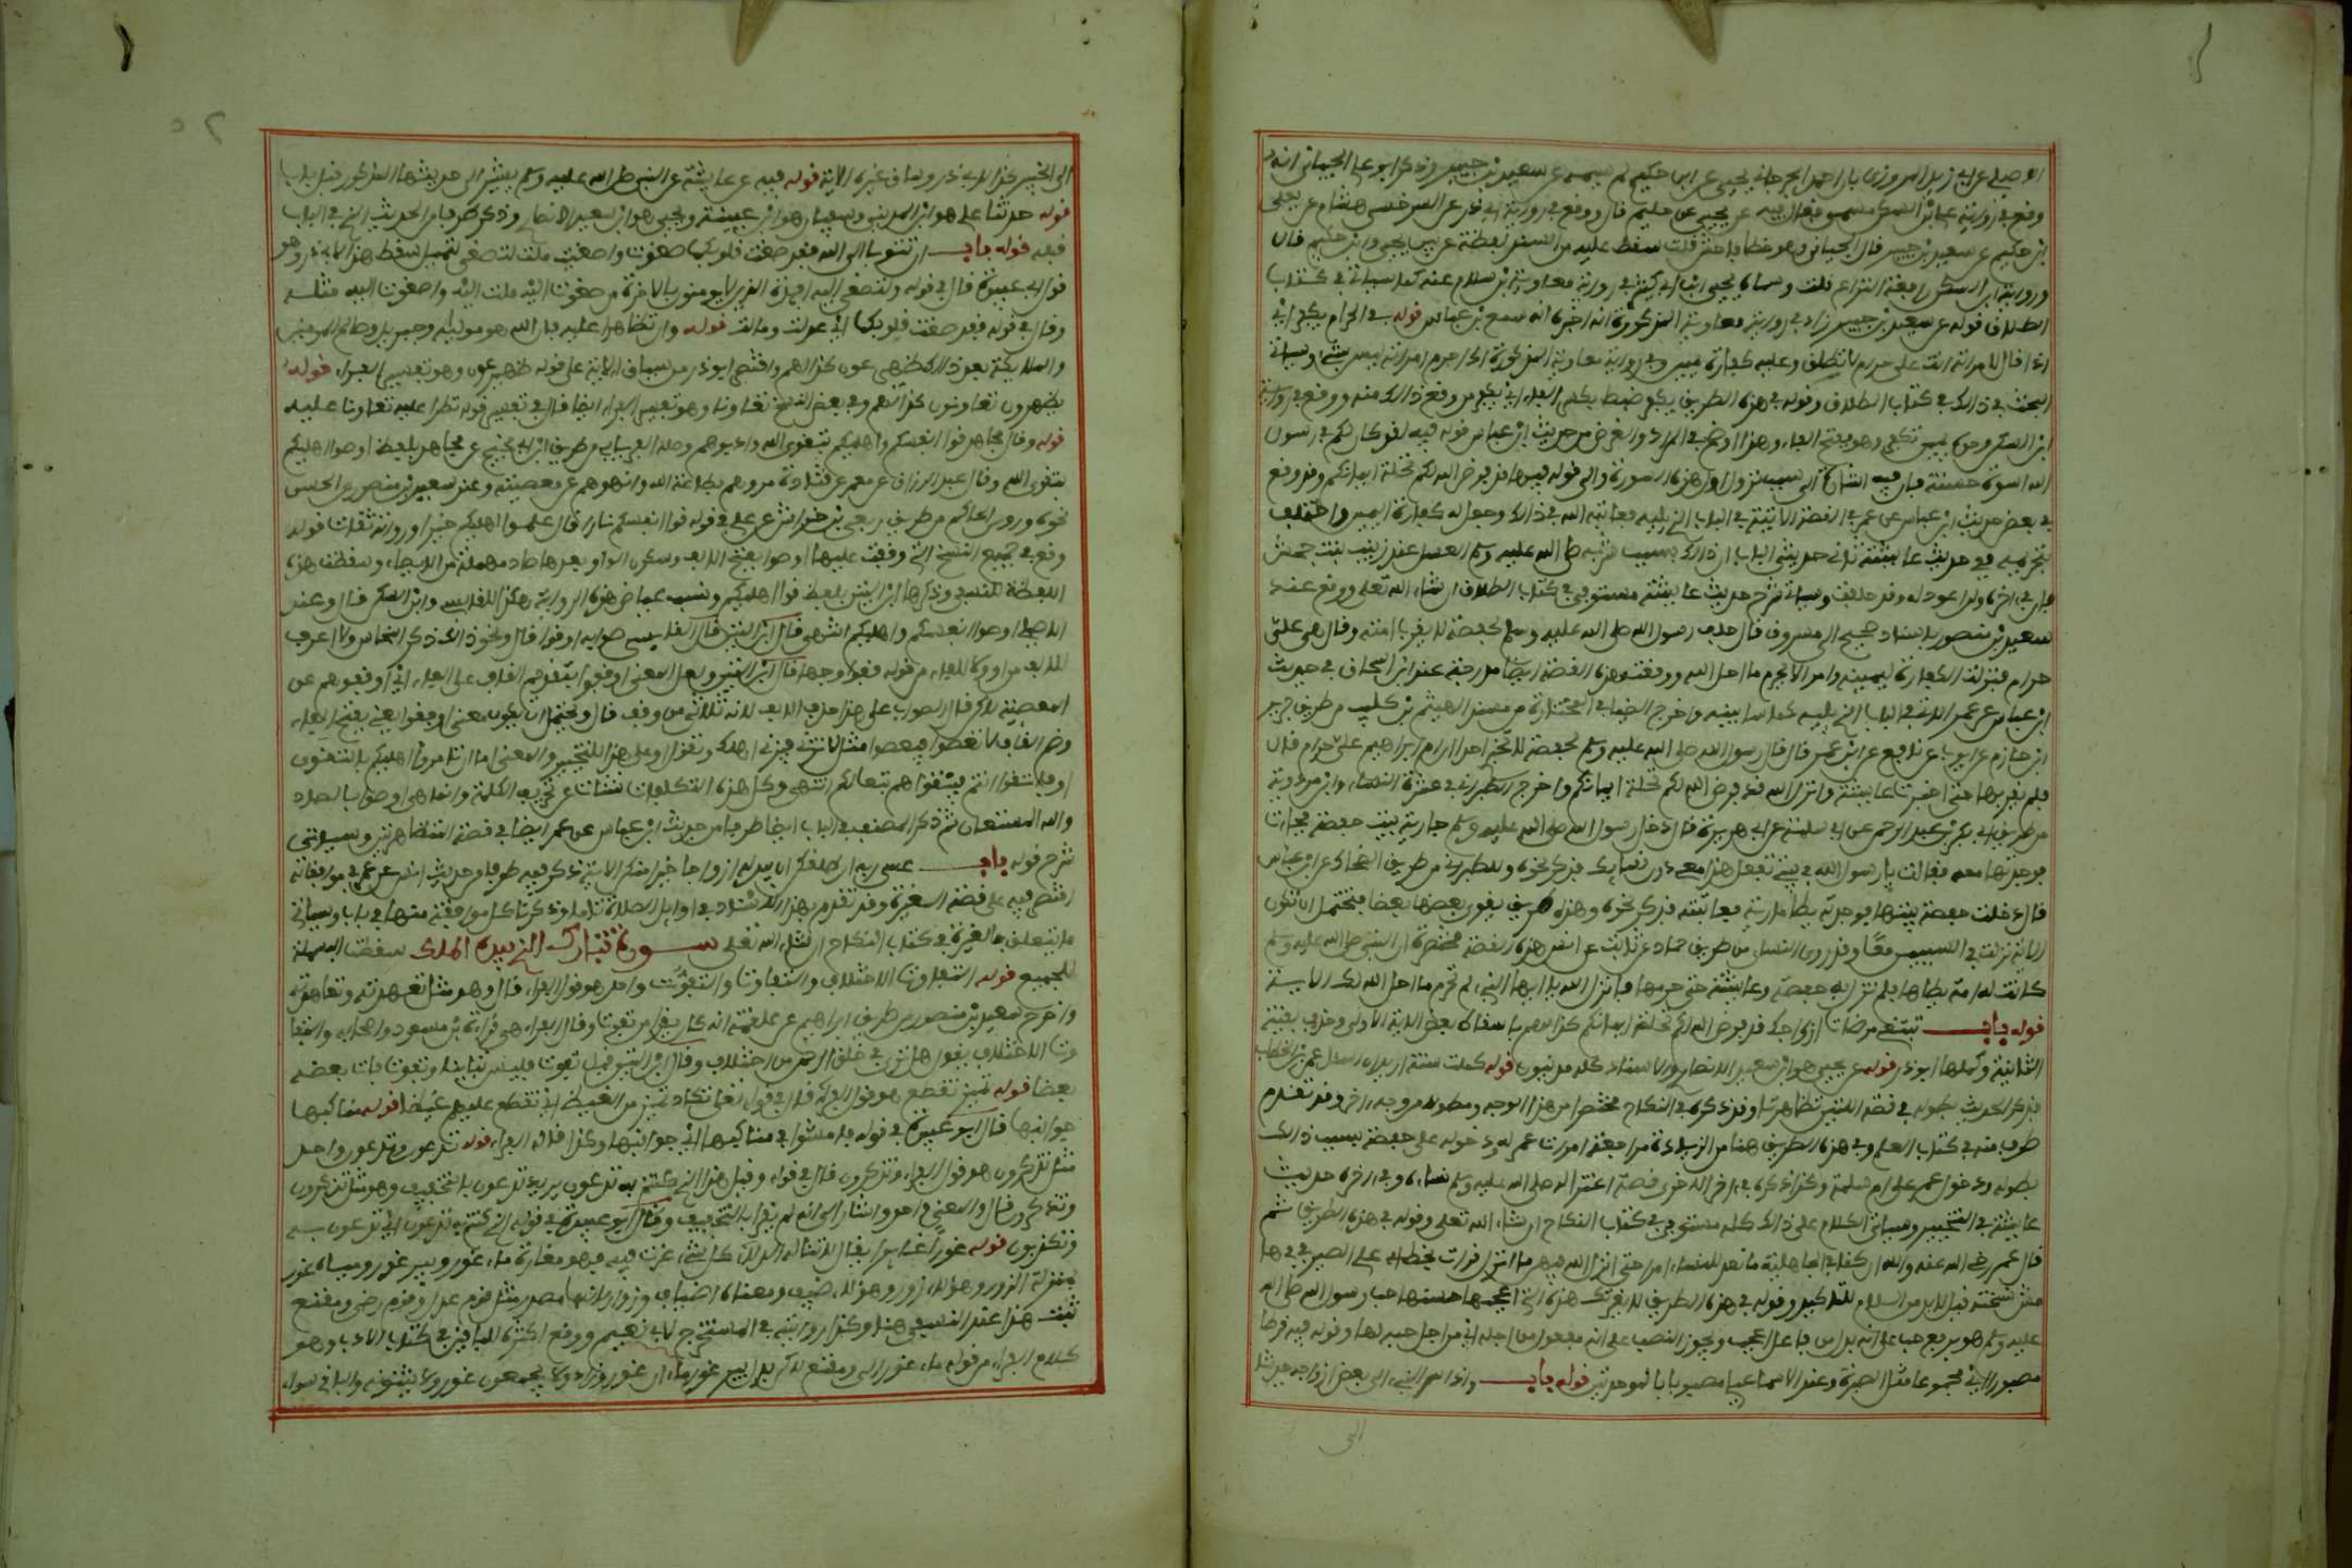 الاصيلي عن ابي زيد المروزي بان احمد الجرجاني يحيى عن ابن حكيم لم يسمه عن سعيد بن جبير وذكر ابو علي الجياني انه
وقع في رواية ابن السكن مسمى فقال فيه عن يحيى عن يعلى بن حكيم قال ووقع في رواية ابي ذر عن السرخسي هشام عن يحيى
ابن حكيم عن سعيد بن جبير قال الجياني وهو خطا فاحش قلت سقط عليه من النسخة لفظة عن بين يحيى وابن حكيم قال
ورواية ابن السكن رافعة للنزاع قلت وسماه يحيى ابن ابي كثير في رواية معاوية بن سلام عنه كما سياتي في كتاب
الطلاق قوله عن سعيد بن جبير زاد في رواية معاوية المذكورة انه اخبره انه سمع بن عباس قوله في الحرام يكفر اي
اذا قال لامراته انت علي حرام لا تطلق وعليه كفارة يمين وفي رواية معاوية المذكورة اذا حرم امراته ليس بشيء وسياتي
البحث في ذلك في كتاب الطلاق وقوله في هذه الطريق يكفر ضبط بكسر الفاء اي يكفر من وقع ذلك منه ووقع في رواية
ابن السكن وحده يمين تكفر وهو بفتح الفاء وهذا اوضح في المراد والغرض من حديث ابن عباس قوله فيه لقد كان لكم في رسول
الله اسوة حسنة فان فيه اشارة الى سبب نزول اول هذه السورة والى قوله فيها قد فرض الله لكم تحلة ايمانكم وقد وقع
في بعض حديث ابن عباس عن عمر في القصة الاتية في الباب الذي يليه فعاتبه الله في ذلك وجعل له كفارة اليمين واختلف
بتحريمه ففي حديث عائشة ثاني حديثي الباب ان ذلك بسبب شربه صلى الله عليه وسلم العسل عند زينب بنت جحش
فان في اخره ولن اعود له وقد حلفت وسياتي شرح حديث عائشة مستوفى في كتاب الطلاق ان شاء الله تعالى ووقع عند
سعيد بن منصور باسناد صحيح الى مسروق قال حلف رسول الله صلى الله عليه وسلم لحفصة لا يقرب امته وقال هي علي
حرام فنزلت الكفارة ليمينه وامر الا يحرم ما احل الله ووقعت هذه القصة ايضا مدرجة عند ابن اسحاق في حديث
ابن عباس عن عمر الاتي في الباب الذي يليه كما سابينه واخرج الضياء في المختارة من مسند الهيثم بن كليب من طريق جرير
ابن حازم عن ايوب عن نافع عن ابن عمر قال قال رسول الله صلى الله عليه وسلم لحفصة لا تخبري احدا ان ام ابراهيم علي حرام قال
فلم يقربها حتى اخبرت عائشة وانزل الله قد فرض الله لكم تحلة ايمانكم واخرج الطبراني في عشرة النساء وابن مردويه
من طريق ابي بكر بن عبد الرحمن عن ابي سلمة عن ابي هريرة قال دخل رسول الله صلى الله عليه وسلم بمارية بيت حفصة فجاءت
فوجدتها معه فقالت يا رسول الله في بيتي تفعل هذا معي دون نسائك فذكر نحوه وللطبراني من طريق الضحاك عن ابن عباس
قال دخلت حفصة بيتها فوجدته يطا مارية فعاتبته فذكر نحوه وهذه طرق يقوي بعضها بعضا فيحتمل ان تكون
الاية نزلت في السببين معا وقد روى النسائي من طريق حماد عن ثابت عن انس هذه القصة مختصرة ان النبي صلى الله عليه وسلم
كانت له امة يطاها فلم تزل به حفصة وعائشة حتى حرمها فانزل الله يا ايها النبي لم تحرم ما احل الله لك الاية
قوله باب تبتغي مرضات ازواجك قد فرض الله لكم تحلة ايمانكم كذا لهم باسقاط بعض الاية الاولى وحذف بقية
الثانية وكملها ابو ذر قوله عن يحيى هو ابن سعيد الانصاري والاسناد كله مدنيون قوله مكثت سنة اريد ان اسال عمر بن الخطاب
فذكر الحديث بطوله في قصة اللتين تظاهرتا وقد ذكره في النكاح مختصرا من هذا الوجه ومطولا من وجه اخر وتقدم
طرف منه في كتاب العلم وفي هذه الطريق هنا من الزيادة مراجعة امرات عمر له ودخوله على حفصة بسبب ذلك
بطوله ودخول عمر على ام سلمة وذكر في اخر الاخرى قصة اعتزاله صلى الله عليه وسلم نساءه وفي اخره حديث
عائشة في التخيير وسياتي الكلام على ذلك كله مستوفى في كتاب النكاح ان شاء الله تعالى وقوله في هذه الطريق ثم
قال عمر رضي الله عنه والله ان كنا في الجاهلية ما نعد للنساء امرا حتى انزل الله فيهن ما انزل قرات بخط ابي علي الصدفي في هامش
نسخته قيل لابد من اللام للتاكيد وقوله في هذه الطريق لا يغرنك هذه التي اعجبها حسنها حب رسول الله صلى الله
عليه وسلم هو برفع حب على انه بدل من فاعل اعجب ويجوز النصب على انه مفعول من اجله اي من اجل حبه لها وقوله فيه قرظا
مصبورا اي مجموعا مثل الصبرة وعند الاسماعيلي مصبوبا بالموحدتين قوله باب واذ اسر النبي الى بعض ازواجه حديثا
الى
٥٢
الى الخبير كذا لابي ذر وساق غيره الاية قوله فيه عن عائشة عن النبي صلى الله عليه وسلم يشير الى حديثها المذكور قبل بباب
قوله حدثنا علي هو ابن المديني وسفيان هو ابن عيينة ويحيى هو ابن سعيد الانصاري وذكر طرفا من الحديث الذي في الباب
قبله قوله باب ان تتوبا الى الله فقد صغت قلوبكما صغوت واصغيت ملت لتصغى لتميل سقط هذا لابي ذر وهو
قول ابي عبيدة قال في قوله ولتصغى اليه افئدة الذين لا يومنون بالاخرة من صغوت اليه ملت اليه واصغوت اليه مثله
وقال في قوله فقد صغت قلوبكما اي عدلت ومالت قوله وان تظاهرا عليه فان الله هو موليه وجبريل وصالح المومنين
والملايكة بعد ذلك ظهير عون كذا لهم واقتصر ابو ذر من سياق الاية على قوله ظهير عون وهو تفسير الفراء قوله
تظهرون تعاونون كذا لهم وفي بعض النسخ تعاونا وهو تفسير الفراء ايضا قال في تفسير قوله تظاهرا عليه تعاونا عليه
قوله وقال مجاهد قوا انفسكم واهليكم بتقوى الله وادبوهم وصله الفريابي من طريق ابن ابي نجيح عن مجاهد بلفظ اوصوا اهليكم
بتقوى الله وقال عبد الرزاق عن معمر عن قتادة مروهم بطاعة الله وانهوهم عن معصيته وعند سعيد بن منصور عن الحسن
نحوه وروى الحاكم من طريق ربعي بن حراش عن علي في قوله قوا انفسكم نارا قال علموا اهليكم خيرا ورواته ثقات قوله
وقع في جميع النسخ التي وقفت عليها اوصوا بفتح الالف وسكون الواو بعدها صاد مهملة من الايصاء وسقطت هذه
اللفظة للنسفي وذكرها ابن التين بلفظ قوا اهليكم ونسب عياض هذه الرواية هكذا للقابسي وابن السكن قال وعند
الاصيلي اوصوا انفسكم واهليكم انتهى قال ابن التين قال القابسي صوابه اوقوا قال ونحو ذلك ذكر النحاس ولا اعرف
للالف من او ولا للفاء من قوله فقوا وجها قال ابن التين ولعل المعنى اوقفوا بتقديم القاف على الفاء اي اوقفوهم عن
المعصية لكن قال الصواب على هذا حذف الالف لانه ثلاثي من وقف قال ويحتمل ان يكون معنى اوفقوا يعني بفتح الفاء
وضم القاف لا تعصوا فيعصوا مثل لا تزن فيزني اهلك وتقول او على هذا للتخيير والمعنى اما ان تامروا اهليكم بالتقوى
او فاتقوا انتم فيتقوا هم تبعا لكم انتهى وكل هذه التكلفات نشات عن تحريف الكلمة وانما هي اوصوا بالصاد
والله المستعان ثم ذكر المصنف في الباب ايضا طرفا من حديث ابن عباس عن عمر ايضا في قصة المتظاهرتين وسياتي
شرح قوله باب عسى ربه ان طلقكن ان يبدله ازواجا خيرا منكن الاية ذكر فيه طرفا من حديث انس عن عمر في موافقاته
اقتصر فيه على قصة الغيرة وقد تقدم بهذا الاسناد في اوايل الصلاة تاما وذكرنا كل موافقة منها في بابها وسياتي
ما يتعلق بالغيرة في كتاب النكاح ان شاء الله تعالى سورة تبارك الذي بيده الملك سقطت البسملة
للجميع قوله التفاوت الاختلاف والتفاوت والتفوت واحد هو قول الفراء قال وهو مثل تعهدته وتعاهدته
واخرج سعيد بن منصور من طريق ابراهيم عن علقمة انه كان يقرا من تفوت وقال الفراء هي قراءة بن مسعود واصحابه والتفا
وت الاختلاف يقول هل ترى في خلق الرحمن من اختلاف وقال ابن التين قيل تفوت فليس تباينا وتفوت فات بعضه
بعضا قوله تميز تقطع هو قول الفراء قال في قوله تعالى تكاد تميز من الغيظ اي تقطع عليهم غيظا قوله مناكبها
جوانبها قال ابو عبيدة في قوله فامشوا في مناكبها اي جوانبها وكذا قال الفراء قوله تدعون وتدعون واحد
مثل تذكرون هو قول الفراء وتذكرون قال في قوله وقيل هذا الذي كنتم به تدعون يريد تدعون بالتخفيف وهو مثل تذكرون
وتذكرون قال والمعنى واحد واشار الى انه لم يقرا بالتخفيف وقال ابو عبيدة في قوله الذي كنتم به تدعون اي تدعون به
وتكذبون قوله غورا غائرا يقال لا تناله الدلاء كل شيء غرت فيه فهو مغارة ماء غور وبير غور ومياه غور
بمنزلة الزور وهؤلاء زور وهؤلاء ضيف ومعناه اضياف وزوار لانها مصدر مثل قوم عدل وقوم رضى ومقنع
ثبت هذا عند النسفي هنا وكذا رايته في المستخرج لابي نعيم ووقع اكثره للباقين في كتاب الادب وهو
كلام الفراء من قوله ماء غور الى ومقنع لكن قال بدل بير غور ماءان غور وزاد ولا يجمعون غور ولا يثنونه والباقي سواء